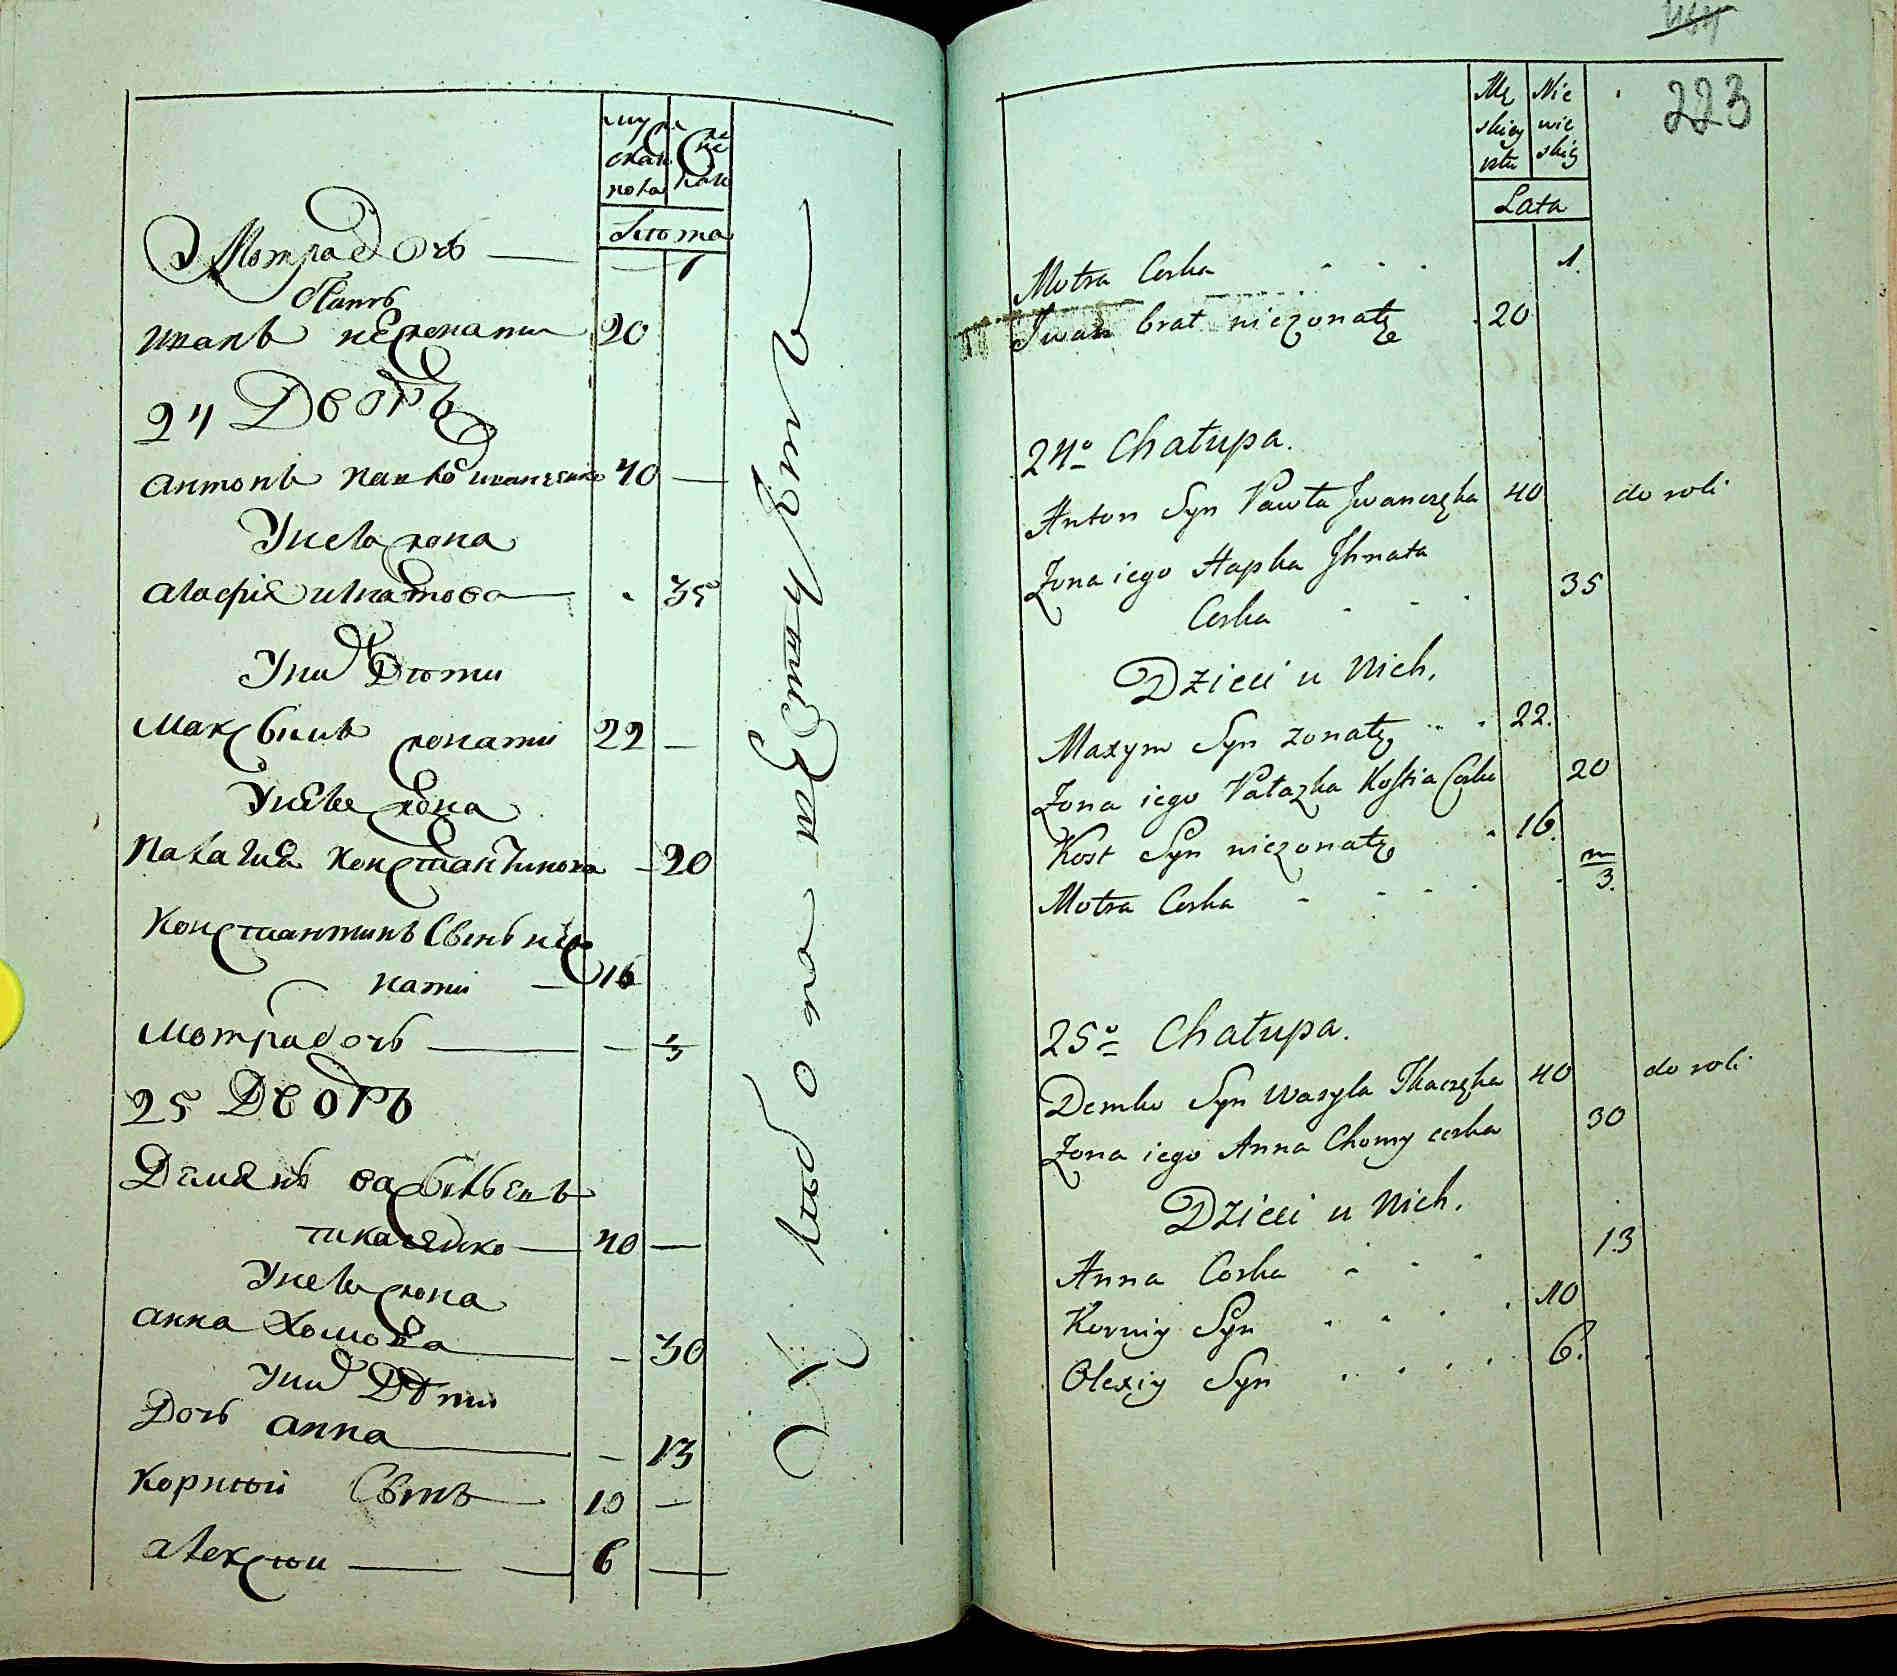 муже
скаго
пола
жен
скаго
Лѣта
Мотра дочь — 1
братъ
иванъ нежонати 20
24 Дворъ
антонъ павловъ иванченко 40 —
У нево жона
агафия игнатова — 35
У них Дѣти
максымъ жонати 22 —
У нево жона
палагия константинова — 20
константинъ Сынъ нежо
нати — 16
мотра дочь — 3
25 Дворъ
Демянъ васыльевъ
ткаченко — 40 —
У нево жона
анна хомова — 30
У них Дѣти
Дочь анна — 13
корнѣй Сынъ 10 —
алексѣи — 6 —
223
Mę
skiey
płci
Nie
wie
skiey
Lata
Motra Corka . . . 1.
Jwan brat niezonatę . 20
24o Chałupa.
Anton Syn Pawła Jwanczęka 40 do roli
Zona iego Hapka Jhnata
Corka . . . 35
Dzieci u Nich.
Maxym Syn zonatę . . 22.
Zona iego Pałazka Kostia Corka 20
Kost Syn niezonatę . 16.
Motra Corka . . . . m/3.
25o Chałupa.
Demko Syn Wasyla Tkaczęka 40 do roli
Zona iego Anna Chomy corka 30
Dzieci u Nich.
Anna Corka . . . 13
Korniy Syn . . . . 10
Olexiy Syn . . . . 6.